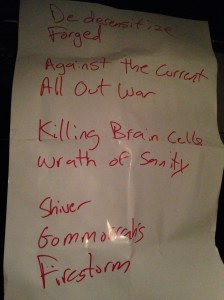 Dedgsensitize
Forged
Against the Current
All Out War
Killing Brain Cells
Wrath of Sanity
Shiver
Gommorralis
Firestorm